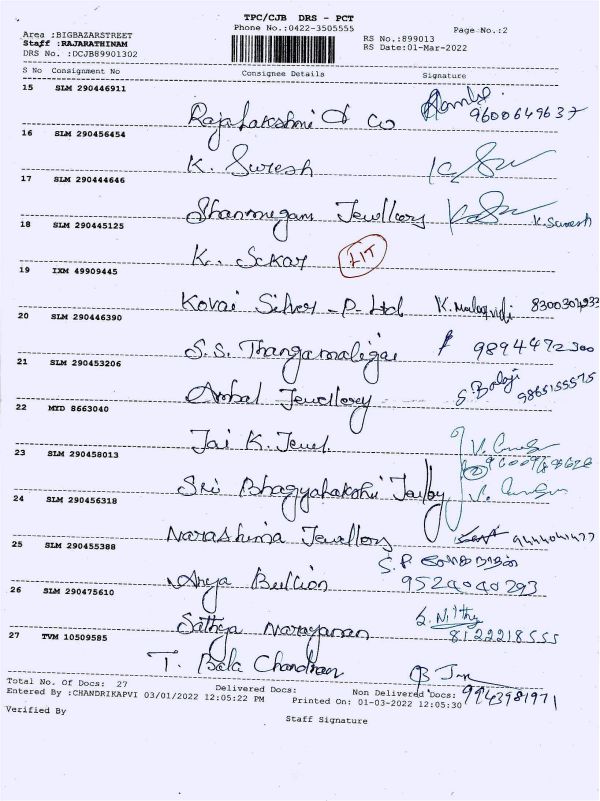 TPC/CJB DRS - PCT
Phone No.:0422-3505555
Page No.:2
Area :BIGBAZARSTREET
Staff :RAJARATHINAM
DRS No. :DCJB89901302
RS No.:899013
RS Date:01-Mar-2022
S No Consignment No Consignee Details Signature
15 SLM 290446911
Rajalakshmi & Co 9600649637
16 SLM 290456454
K. Suresh
17 SLM 290444646
Shanmugam Jewllery K. Suresh
18 SLM 290445125
K. Sekar LIT
19 IXM 49909445
Kovai Silver P. Ltd
20 SLM 290446390
S.S. Thangamaligai 9894472300
21 SLM 290453206
Ambal Jewellery S. Balaji 9865155575
22 MYD 8663040
Jai K. Jewel.
23 SLM 290458013
Sri Bhagyalakshmi
24 SLM 290456318
Narashima Jewellery
25 SLM 290455388
Arya Bullion 9524040293
26 SLM 290475610
Sathya Narayanan S. Nithy 8122218555
27 TVM 10509585
T. Bala Chandran
Total No. Of Docs: 27 Delivered Docs: Non Delivered Docs: 9943981971
Entered By :CHANDRIKAPVI 03/01/2022 12:05:22 PM Printed On: 01-03-2022 12:05:30
Verified By
Staff Signature